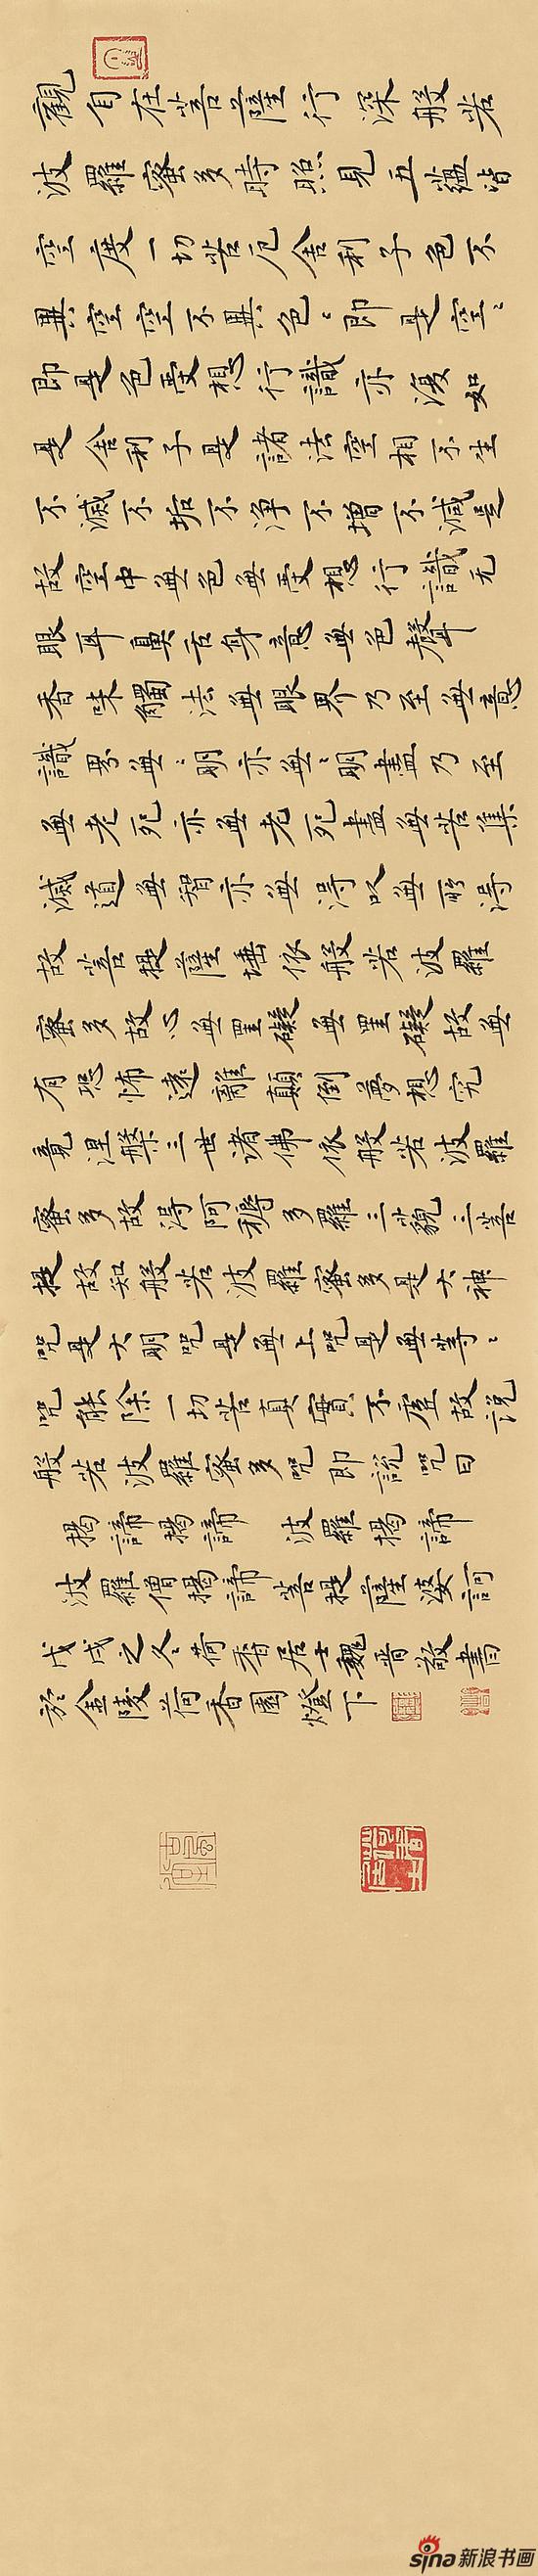 觀自在菩薩行深般若
波羅蜜多時照見五蘊皆
空度一切苦厄舍利子色不
異空空不異色〻即是空〻
即是色受想行識亦復如
是舍利子是諸法空相不生
不滅不垢不淨不增不減是
故空中無色無受想行識无
眼耳鼻舌身意無色聲
香味觸法無眼界乃至無意
識界無〻明亦無〻明盡乃至
無老死亦無老死盡無苦集
滅道無智亦無得以無所得
故菩提薩埵依般若波羅
蜜多故心無罣礙無罣礙故無
有恐怖遠離顛倒夢想究
竟涅槃三世诸佛依般若波羅
蜜多故得阿耨多羅三藐三菩
提故知般若波羅蜜多是大神
咒是大明咒是無上咒是無等〻
咒能除一切苦真實不虛故説
般若波羅蜜多咒即說咒曰
揭諦揭諦 波羅揭諦
波羅僧揭諦菩提薩婆訶
戊戌之冬荷香居士魏晋敬書
於金陵荷香園燈下
sina新浪书画